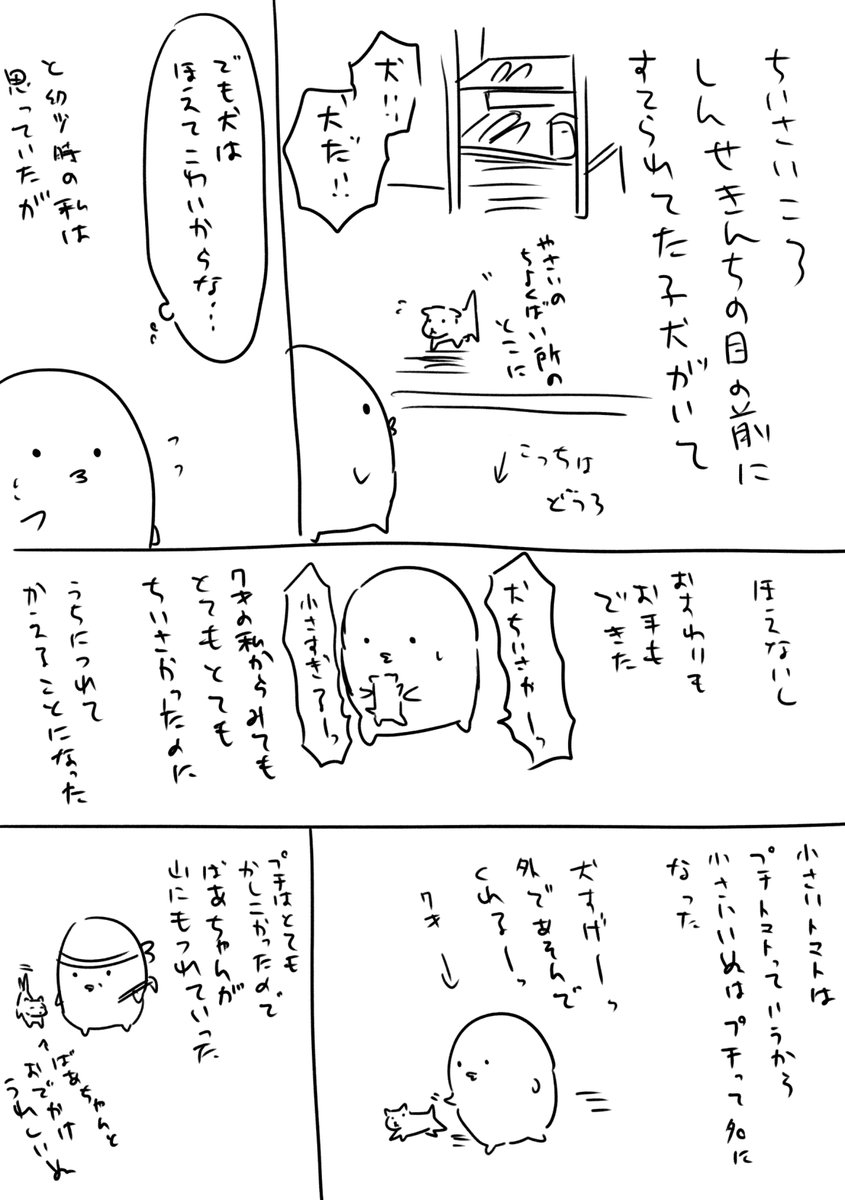 ちいさいころ
しんせきんちの目の前に
すてられてた子犬がいて
犬!!
犬だ!!
やさいの
ちょくばい所の
とこに
こっちは
どうろ
でも犬は
ほえてこわいからな…
と幼少時の私は
思っていたが
ほえないし
おすわりも
お手も
できた
犬ちいさかーっ
小さすぎるーっ
7才の私からみても
とてもとても
ちいさかったのに
うちにつれて
かえることになった
小さいトマトは
プチトマトっていうから
小さいいぬはプチって名に
なった
犬すげーっ
外であそんで
くれるーっ
7才
プチはとても
かしこかったので
ばあちゃんが
山にもつれていった
ばあちゃんと
おでかけ
うれしいぬ